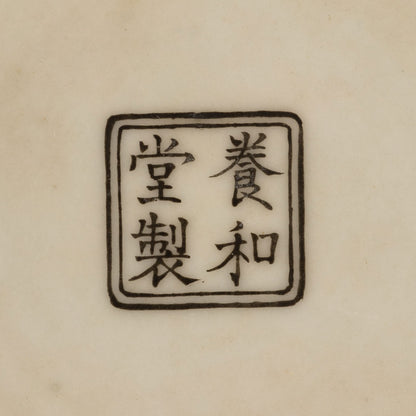 養和
堂製